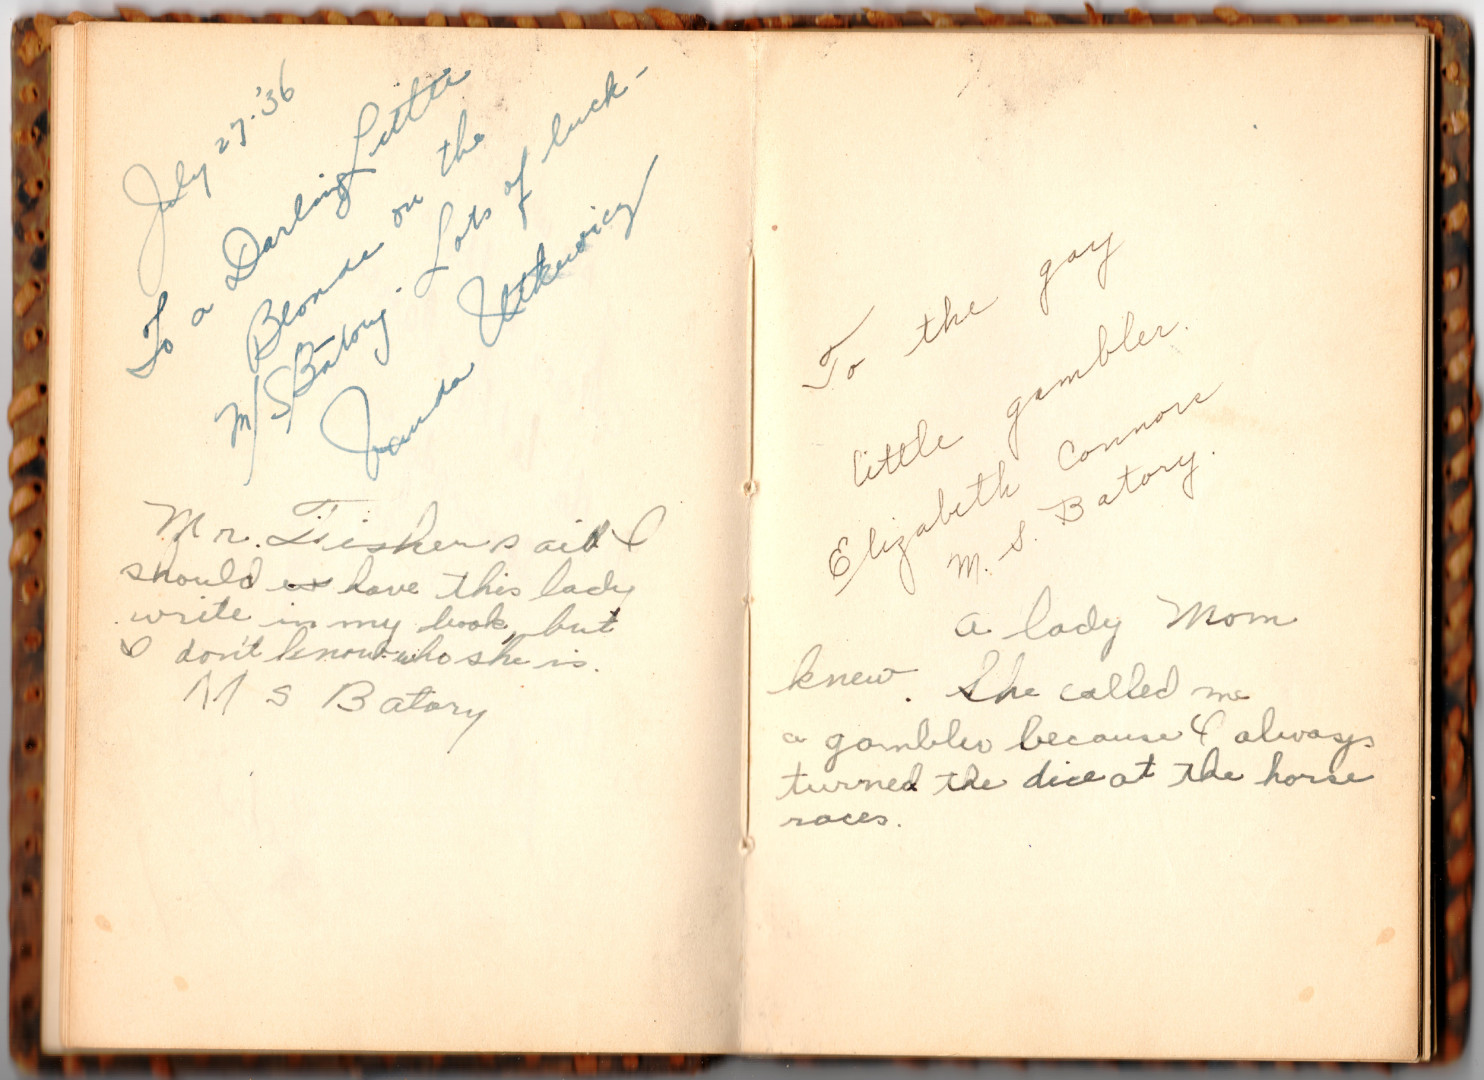 July 27.'36
To a Darling Little
Blonde on the
M/S Batory. Lots of luck-
Utkewicz
Mr. Fisher said I
should have this lady
write in my book, but
I don't know who she is.
M S Batory
To the gay
little gambler.
Elizabeth Connors
M. S. Batory.
A lady Mom
knew. She called me
a gambler because I always
turned the dice at the horse
races.